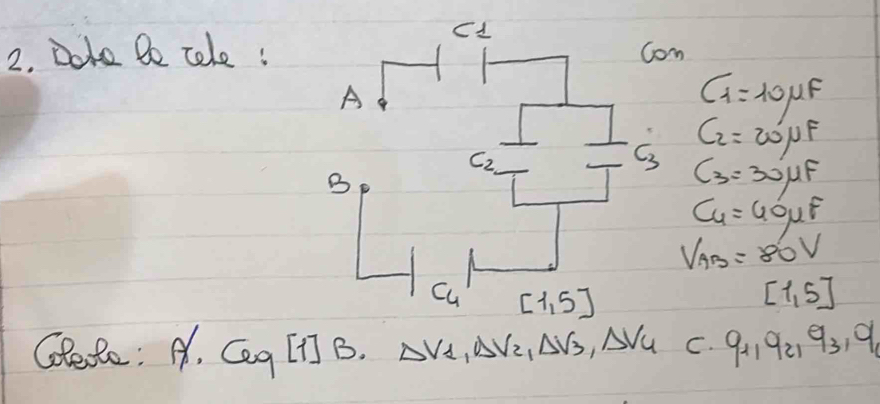 2. Data la rete :
C1
Con
A
C1 = 10μF
C2 = 20μF
C2
C3
C3 = 30μF
B
C4 = 40μF
VAB = 80V
C4
[1,5]
[1,5]
Calcola: A. Ceq [1] B. ΔV1, ΔV2, ΔV3, ΔV4 C. q1, q2, q3, q